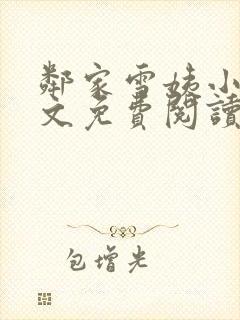 鄰家雪姨小
文免費閱讀
包增光